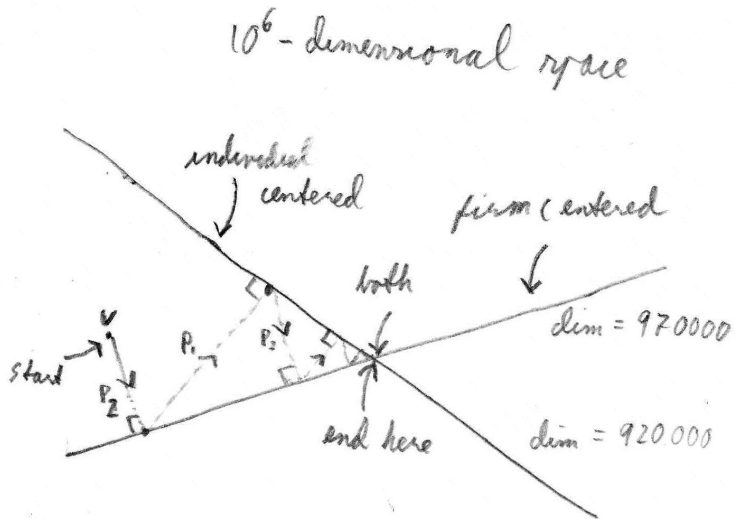 10⁶-dimensional space
individual
centered
firm centered
both
dim = 970000
V
start
P₂
P₁
P₂
end here
dim = 920.000